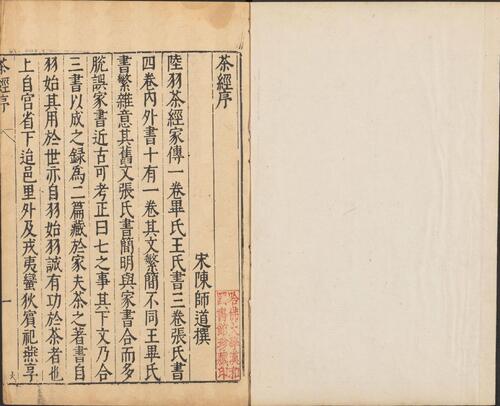 茶經序
宋陳師道撰
陸羽茶經家傳一卷畢氏王氏書三卷張氏書
四卷內外書十有一卷其文繁簡不同王畢氏
書繁雜意其舊文張氏書簡明與家書合而多
脫誤家書近古可考正曰七之事其下文乃合
三書以成之録爲二篇藏於家夫茶之著書自
羽始其用於世亦自羽始羽誠有功於茶者也
上自宫省下迨邑里外及戎夷蠻狄賓祀燕享
茶經序
一